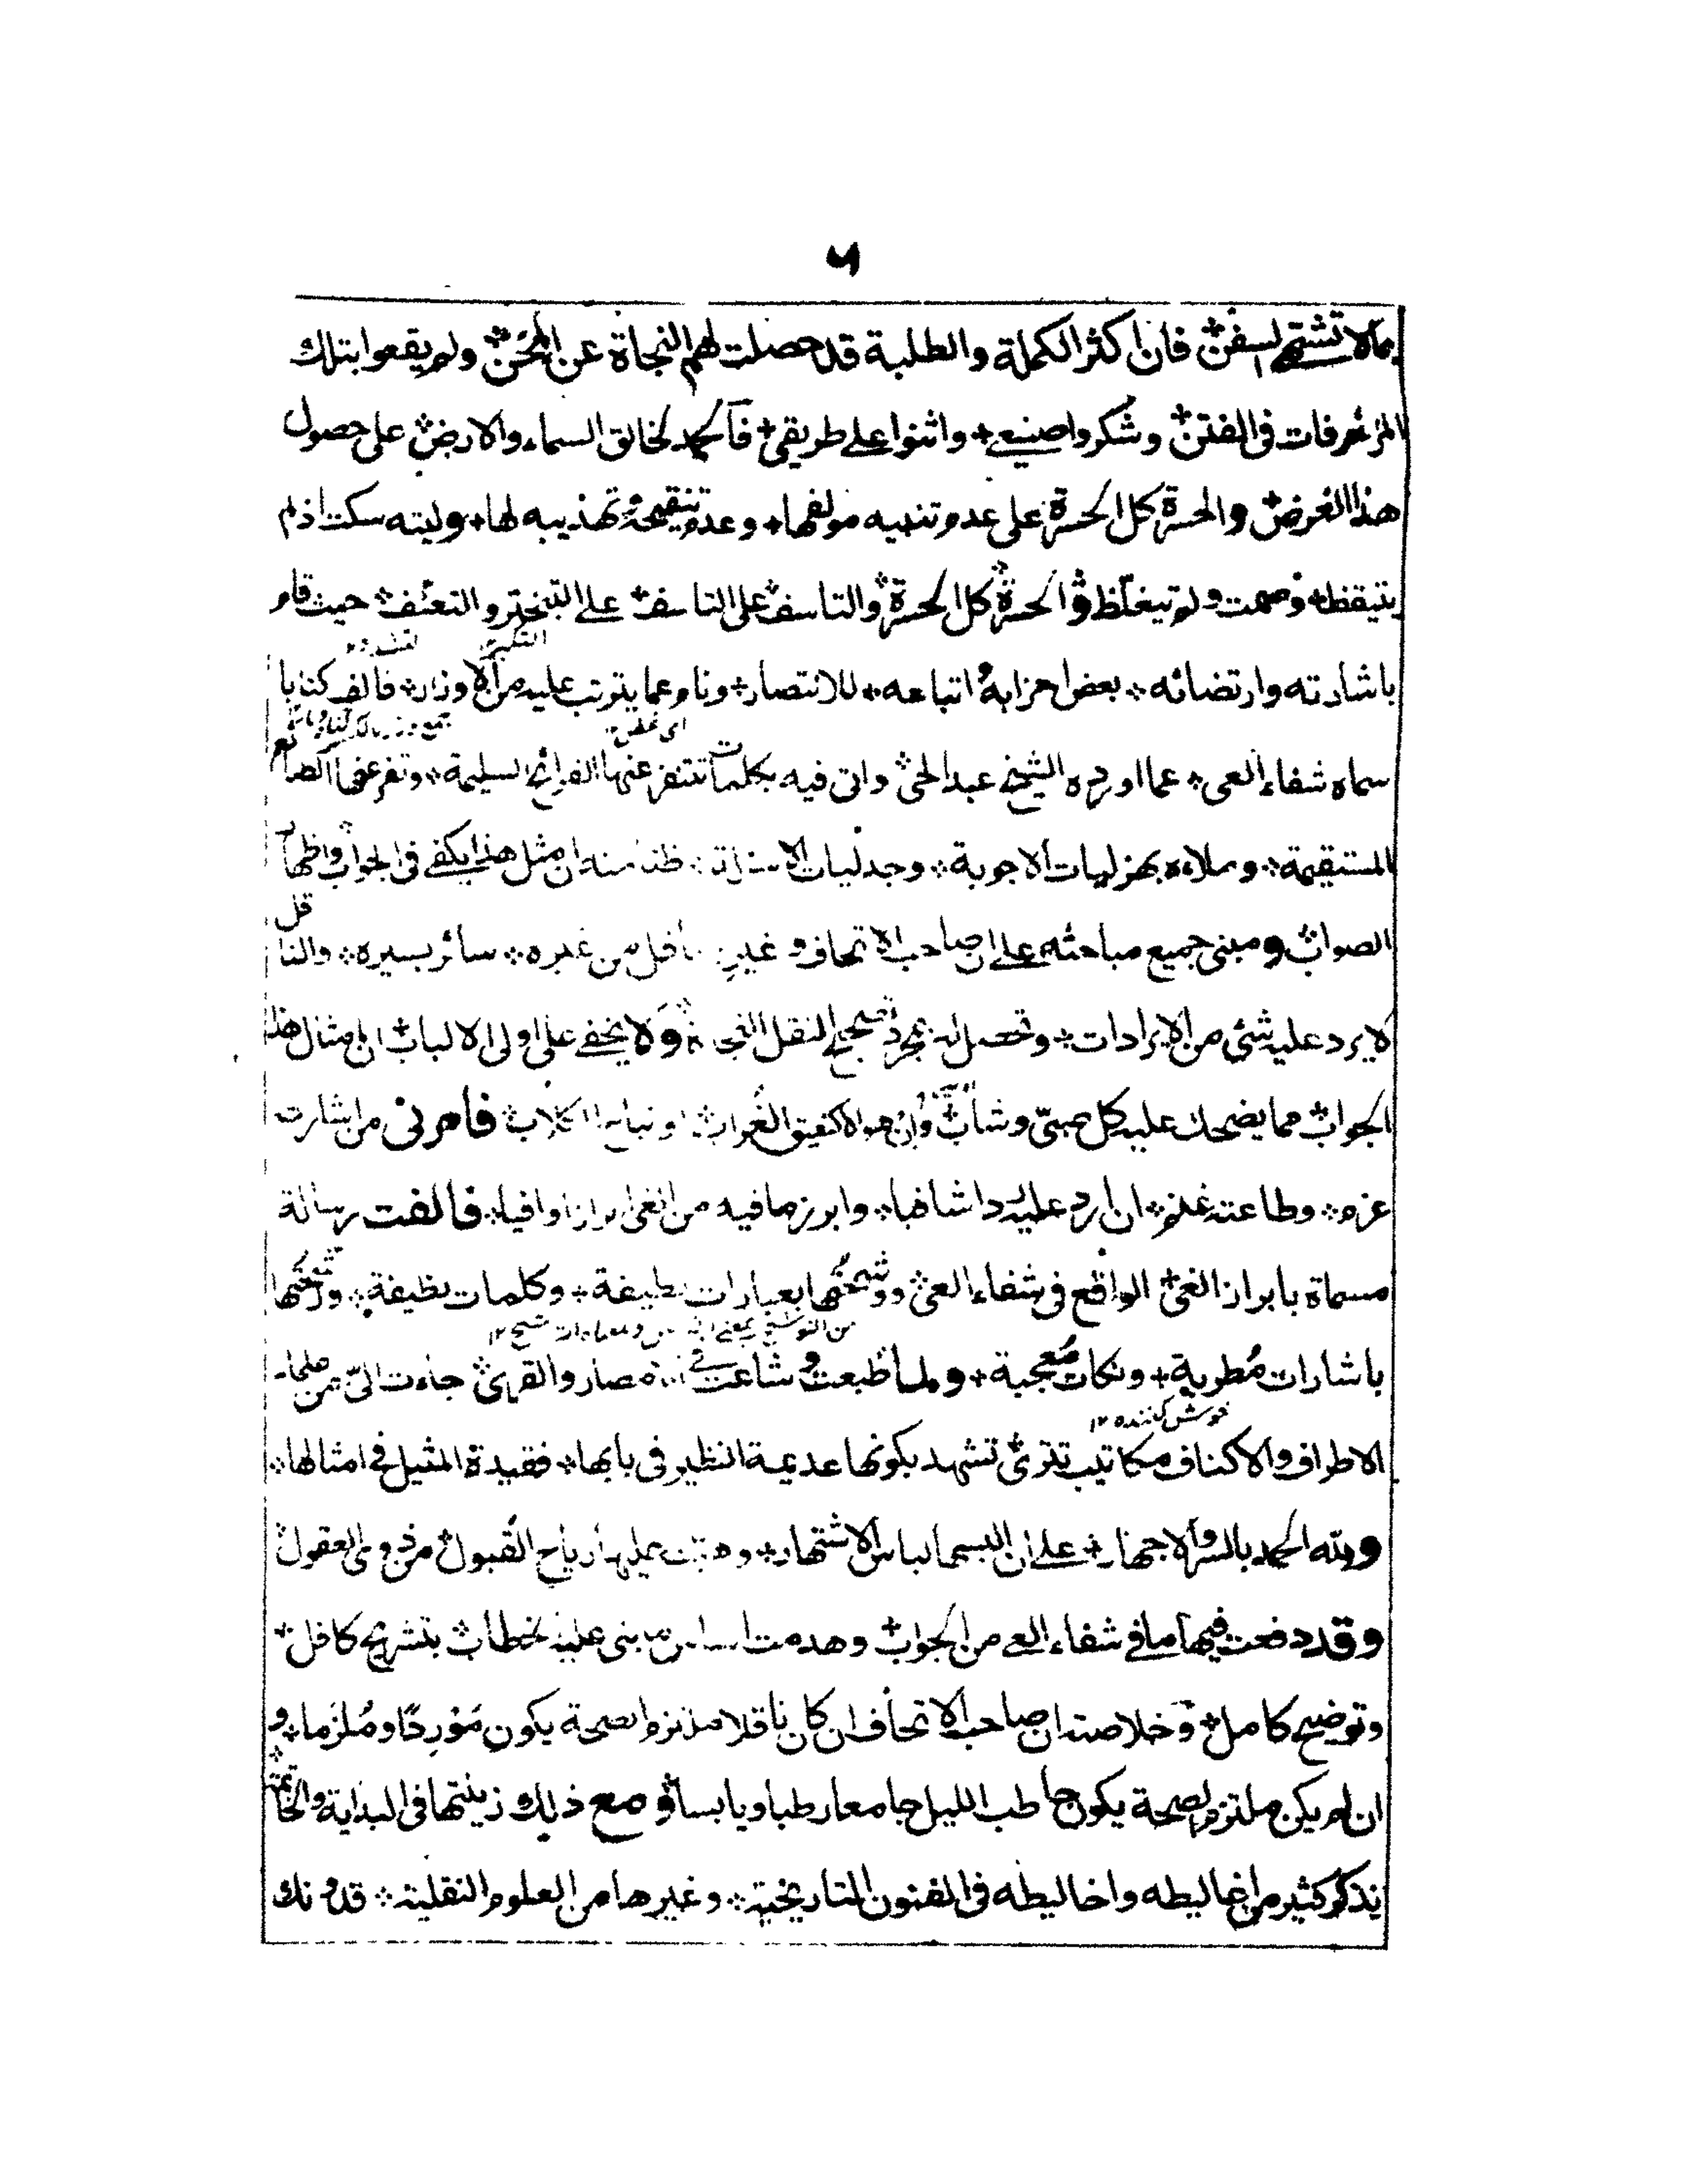 ٦
بمالا تشتهي السفن فان اكثر الكملة والطلبة قد حصلت لهم النجاة عن المحن ولم يقعوا بتلك
المزخرفات في الفتن وشكروا صنيعي واثنوا على طريقي فالحمد لخالق السماء والارض على حصول
هذا الغرض والحسرة كل الحسرة على عدم تنبيه مولفها وعدم تنقيحه وتهذيبه لها وليته سكت اذ لم
يتيقظ وصمت ولم يتغلظ والحسرة كل الحسرة والتاسف على التاسف على التبختر والتعسف حيث قام
التكبر
باشارته وارتضائه بعض احزابه واتباعه للانتصار ونام عما يترتب عليه من الاوزار فالف كتابا
اى غفل
سماه شفاء العى عما اورده الشيخ عبد الحى واتى فيه بكلمات تتنفر عنها القرائح السليمة وتفر عنها الطبائع
المستقيمة وملاءه بهزليات الاجوبة وجدليات الاسئلة ظنا منه ان مثل هذا يكفى فى الجواب واظهار
الصواب ومبنى جميع مباحثه على ان صاحب الاتحاف وغيره ناقل من غيره سائر بسيره والناقل
لا يرد عليه شئ من الايرادات وتحصل له بمجرد تصحيح النقل النجاة ولا يخفى على اولى الالباب ان امثال هذا
الجواب مما يضحك عليه كل صبىّ وشاب وان هو الا كنعيق الغراب او نباح الكلاب فامرنى من اشارته
عزم وطاعته غنم ان ارد عليه ردا شافيا وابرز ما فيه من الغى ابرازا وافيا فالفت رسالة
مسماة بابراز الغى الواقع فى شفاء العى ووشحتها بعبارات لطيفة وكلمات نظيفة ورشحتها
باشارات مُطربة ونكات مُعجبة ولما طبعت وشاعت فى الامصار والقرى جاءت الىّ من صلحاء
خوش كننده ١٢
الاطراف والاكناف مكاتيب تترى تشهد بكونها عديمة النظير فى بابها فقيدة المثيل فى امثالها
ولله الحمد بالسر والاجهار على ان البسها لباس الاشتهار وهبت عليها رياح القبول من ذوى العقول
وقد دفعت فيها ما فى شفاء العى من الجواب وهدمت اساس ما بنى عليه الخطاب بتشريح كافل
وتوضيح كامل وخلاصته ان صاحب الاتحاف ان كان ناقلا ملتزم الصحة يكون مَوْرِدًا ومُلزَما و
ان لم يكن ملتزم الصحة يكون حاطب الليل جامعا رطبا ويابسا ومع ذلك زينتها فى البداية والخاتمة
بذكر كثير من اغاليطه واخاليطه فى الفنون التاريخية وغيرها من العلوم النقلية فدونك